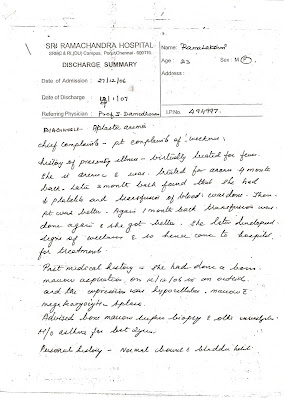 SRI RAMACHANDRA HOSPITAL
SRMC & RI (DU) Campus, Porur, Chennai - 600116
DISCHARGE SUMMARY
Name: Ramalakshmi
Age : 23 Sex : M/F
Address :
Date of Admission : 27/12/06
Date of Discharge : /1/07
Referring Physician : Prof. S. Damodharan
I.P.No. 494997
Diagnosis - Aplastic anemia
Chief complaints - pt complaints of weakness,
History of presenting illness - initially treated for fever.
She is anemic & was treated for anemia 4 month
back. Later a month back found that she had
↓ platelets and transfusion of blood was done. Then
pt was better. Again 1 month back transfusion was
done again & she got better. She later developed
signs of weakness & so hence came to hospital
for treatment.
Past medical history - She had done a bone
marrow aspiration on 12/12/06 in an outside
and the impression was hypocellular marrow &
megakaryocytic aplasia.
Advised bone marrow trephine biopsy & other
H/o asthma for last 2 years.
Personal history - Normal bowel & bladder habit